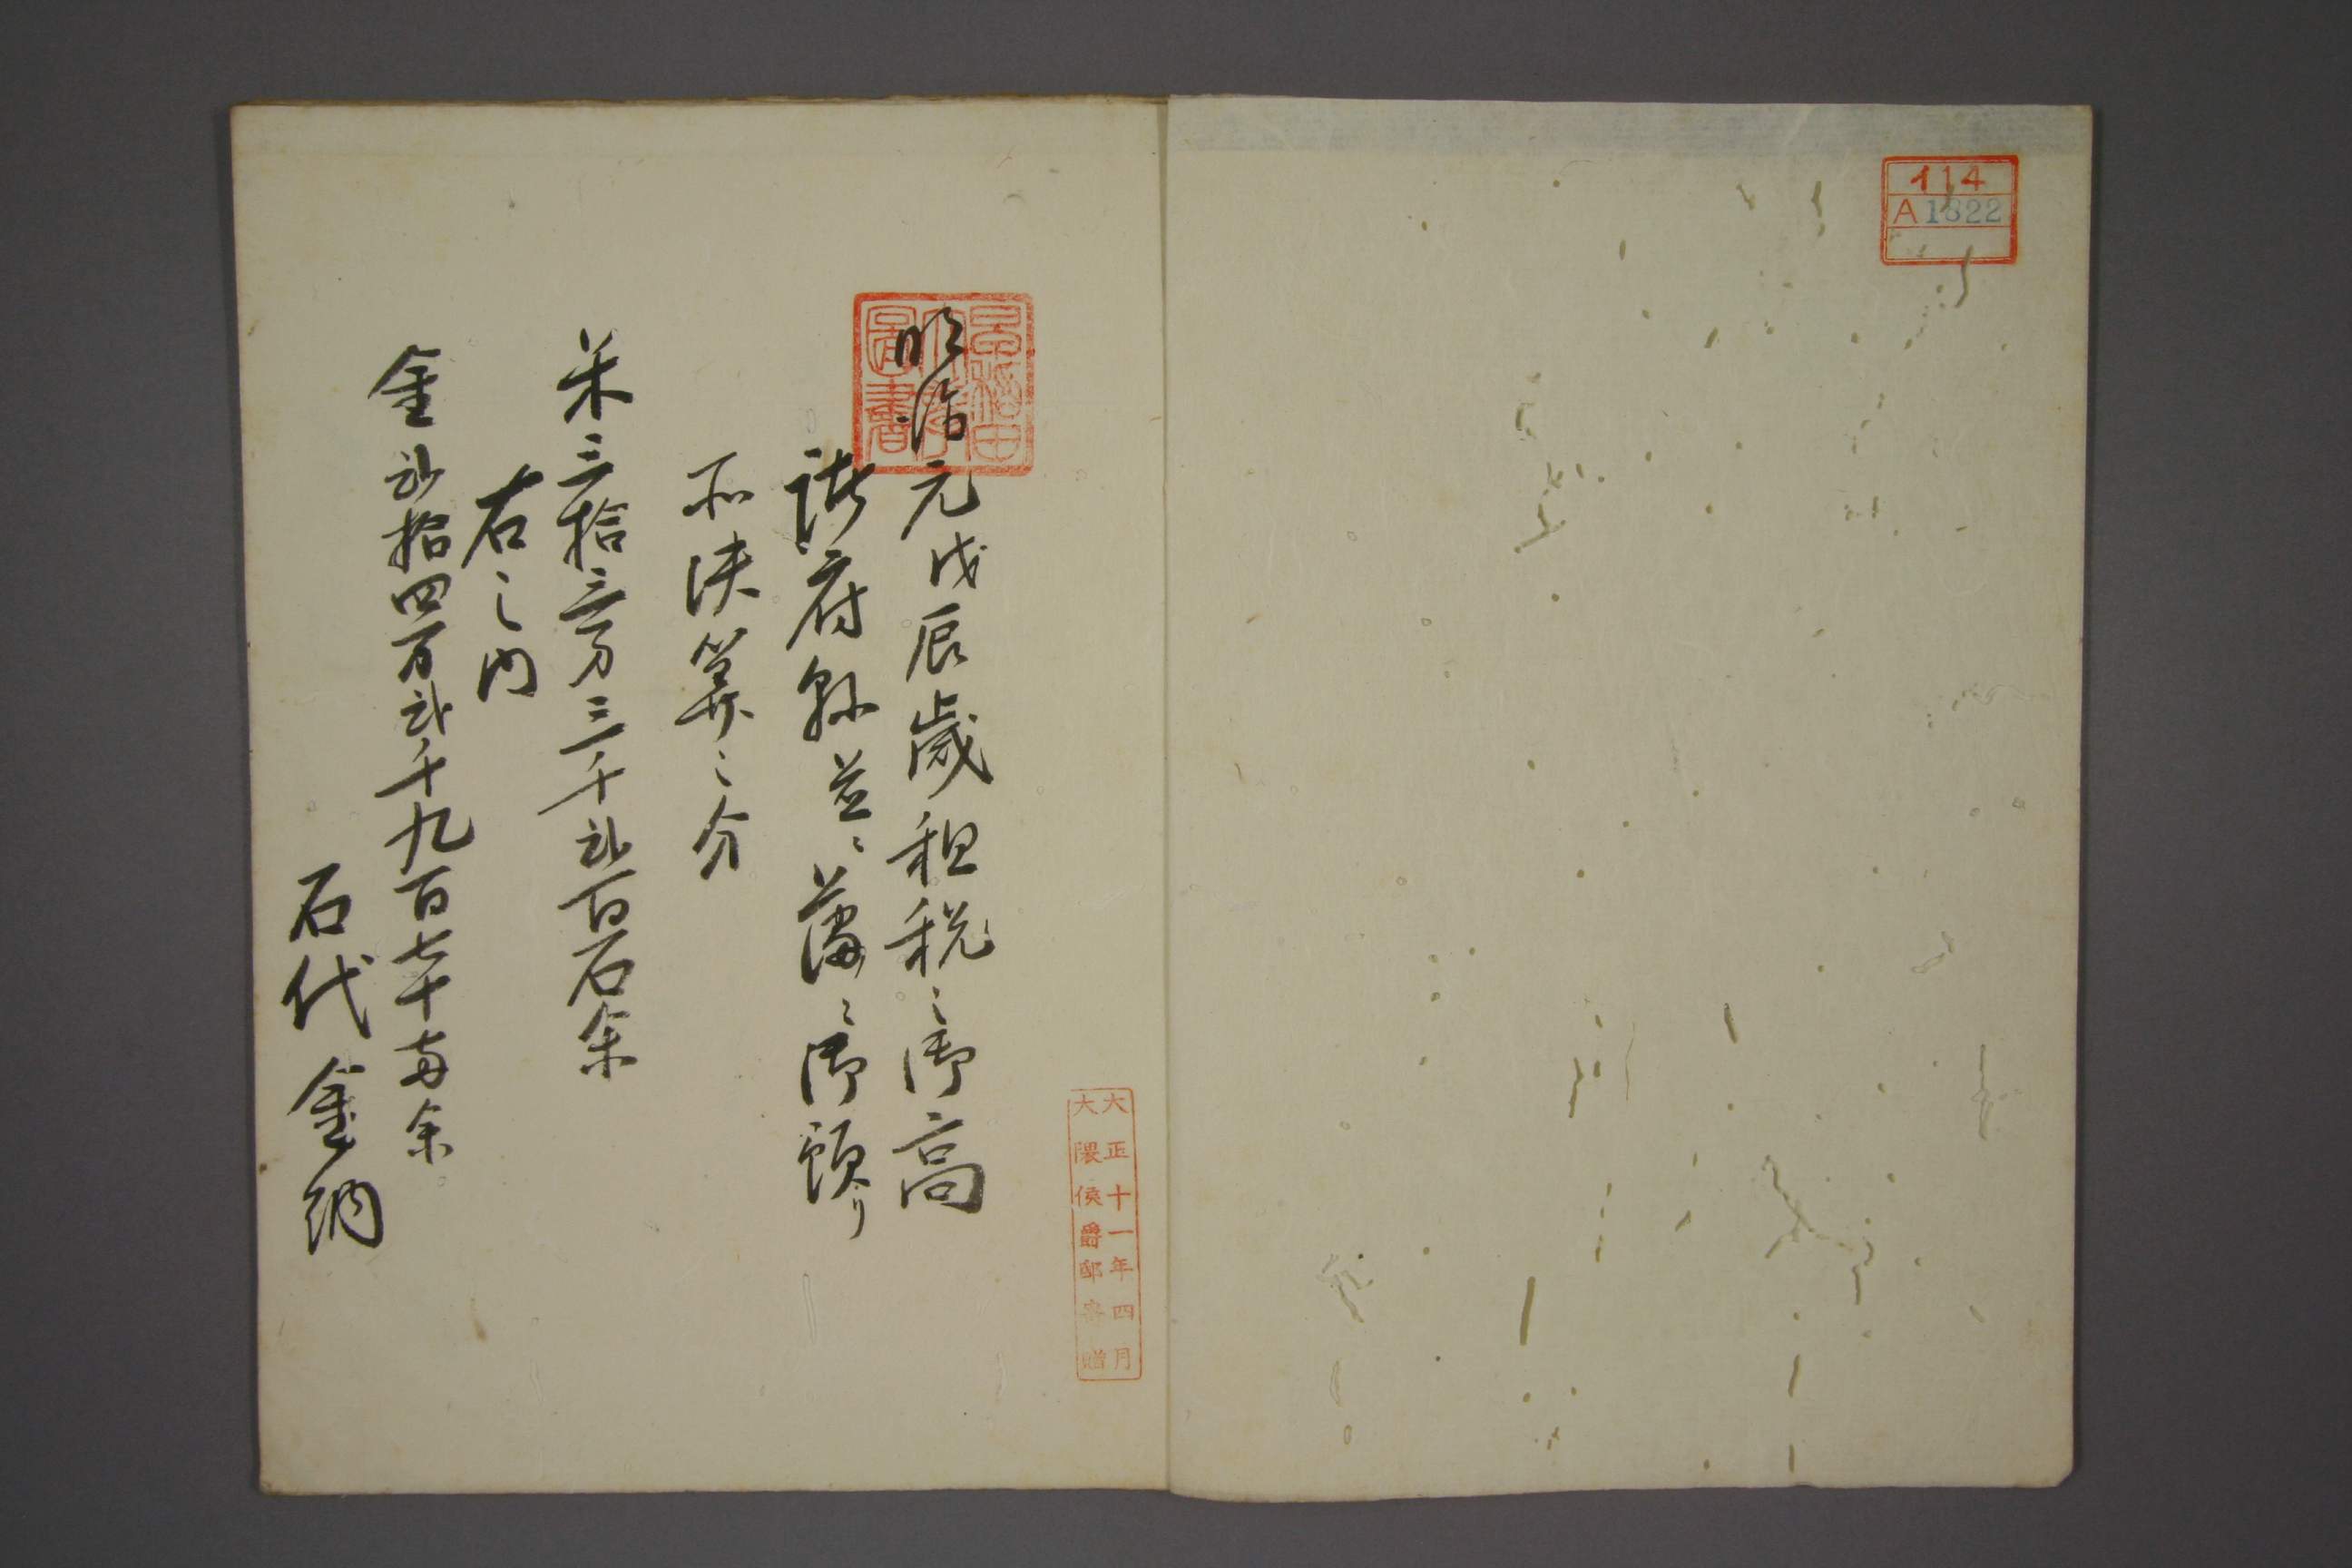 イ14
A1822
早稲田
大学
図書
大正十一年四月
大隈侯爵邸寄贈
明治元戊辰歳租税之御高
諸府縣並ニ藩之御預リ
不決算之分
米三拾三万三千弐百石余
右之内
金弐拾四万弐千九百七十両余
石代金納